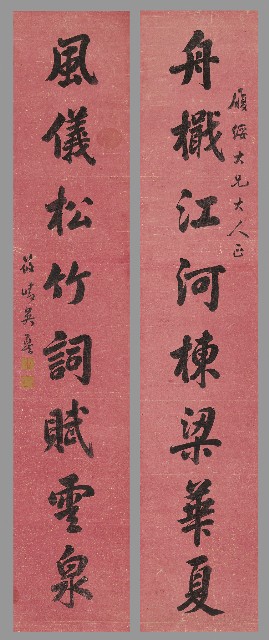 舟檝江河棟梁華夏
履綏大兄大人正
風儀松竹詞賦雲泉